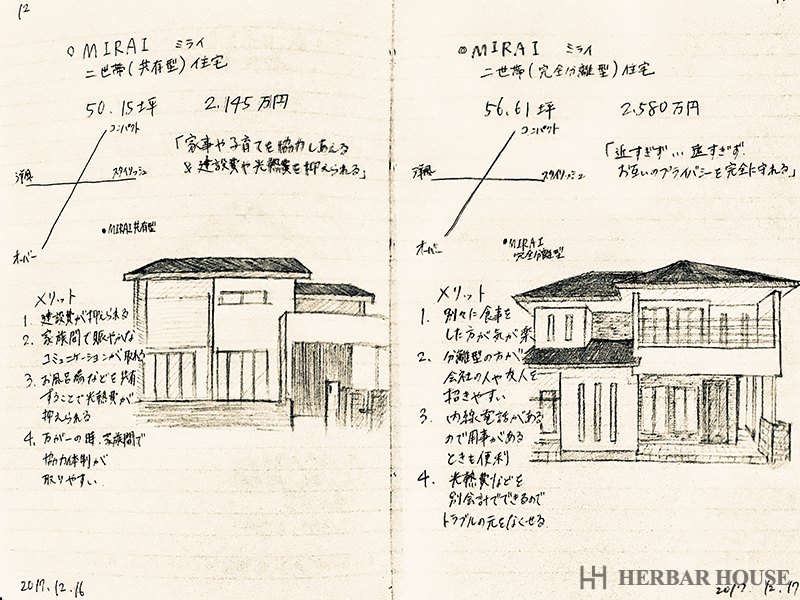 12
○ MIRAI ミライ
二世帯(共有型)住宅
50.15坪 2.145万円
コンパクト
洋風 スタイリッシュ
オーバー
「家事や子育てを協力しあえる
& 建設費や光熱費を抑えられる」
●MIRAI共有型
メリット
1. 建設費が抑えられる
2. 家族間で賑やかな
コミュニケーションが取れる
3. お風呂場などを共有
することで光熱費が
抑えられる
4. 万が一の時、家族間で
協力体制が
取りやすい
2017.12.16
◎MIRAI ミライ
二世帯(完全分離型)住宅
56.61坪 2.580万円
コンパクト
洋風 スタイリッシュ
オーバー
「近すぎず…遠すぎず
お互いのプライバシーを完全に守れる」
●MIRAI
完全分離型
メリット
1. 別々に食事を
した方が気が楽
2. 分離型の方が
会社の人や友人を
招きやすい
3. 内線電話がある
ので用事がある
ときも便利
4. 光熱費などを
別会計でできるので
トラブルの元をなくせる
HERBAR HOUSE
2017. 12. 17